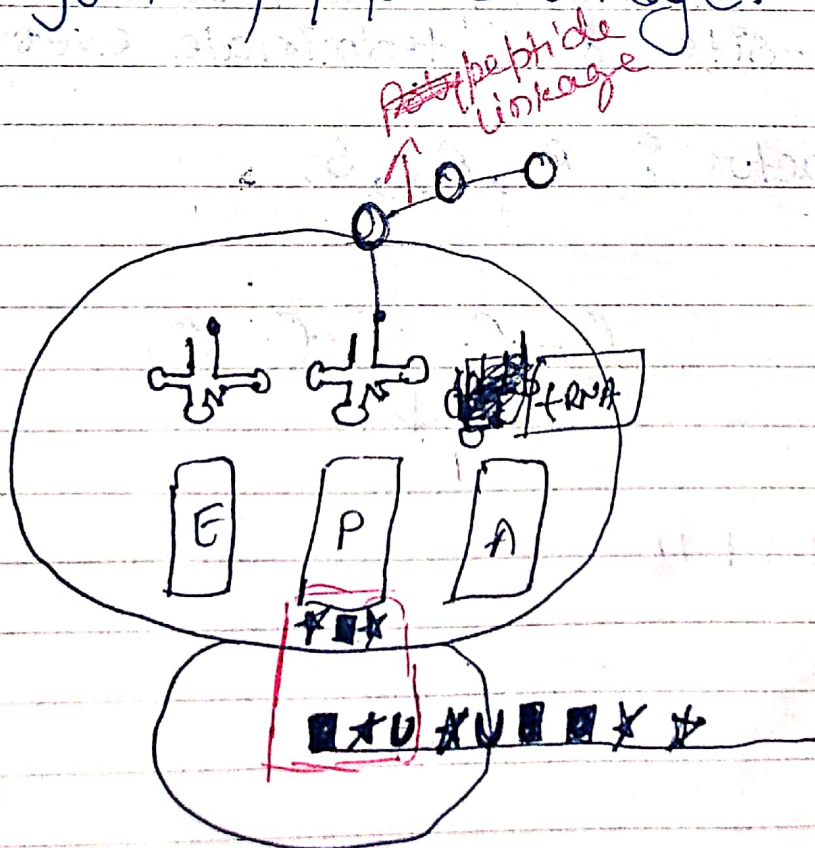 peptide
linkage
tRNA
E
P
A